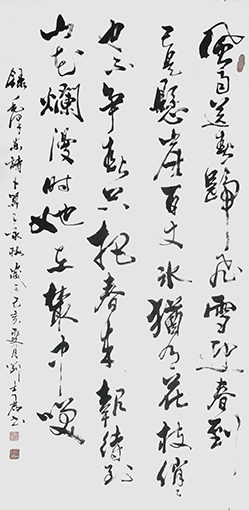 風雨送春歸飛雪迎春到
已是懸崖百丈冰猶有花枝俏〻
也不争春只把春来報待到
山花爛漫时她在叢中咲
録毛泽东詩卜算子咏梅歲之己亥夏月劉